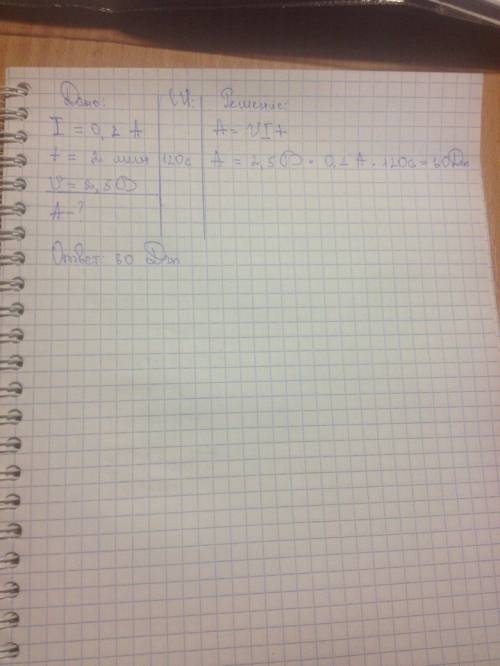 Дано: СИ: Решение:
I = 0,2 А А = UIt
t = 2 мин 120с А = 2,5 В · 0,2 А · 120с = 60Дж
U = 2,5 В
А - ?
Ответ: 60 Дж